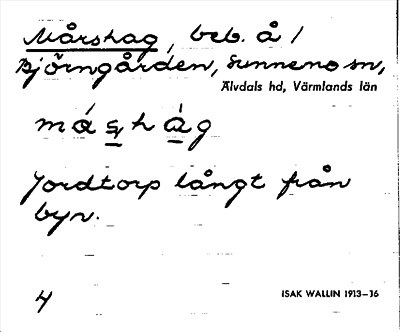 Mårshag, beb. å /
Björngården, Sunnemo sn,
Älvdals hd, Värmlands län
má ş h à g
Jordtorp långt från
byn.
4
ISAK WALLIN 1913–16